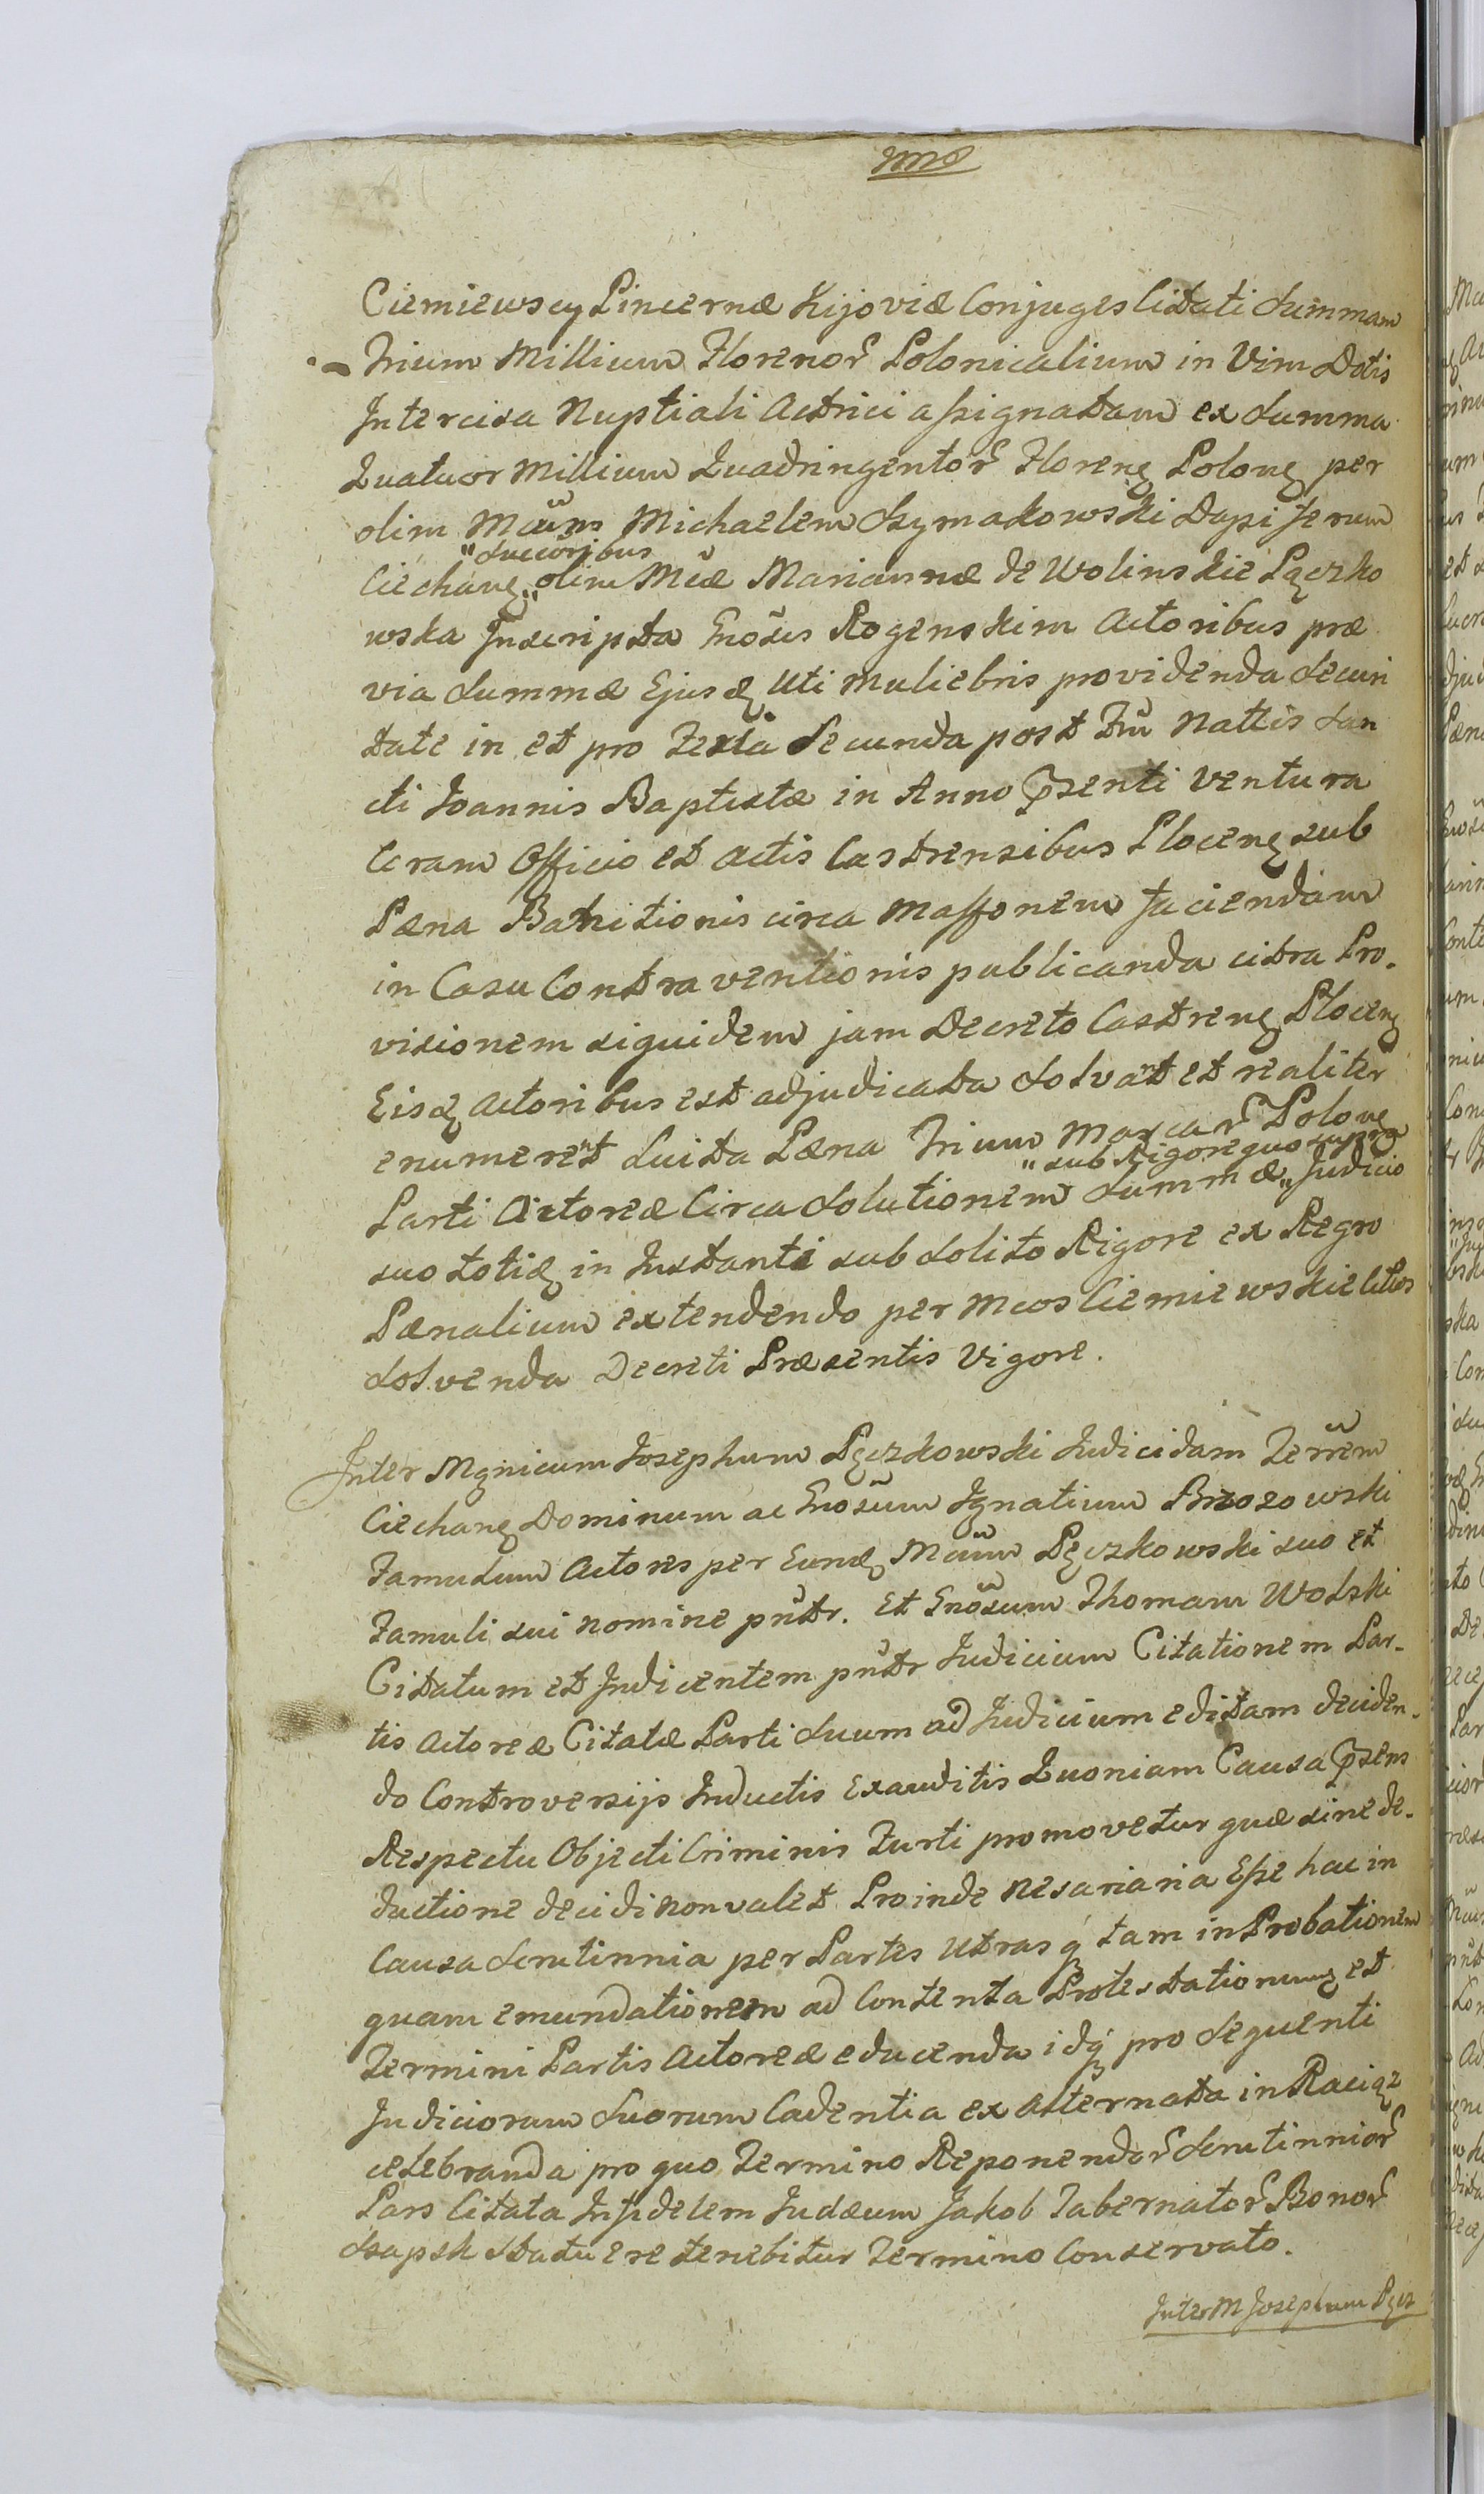 Ciemiewscy Pincernæ Kijoviæ Conjuges Citati Summam
Trium Millium Florenor Polonicalium in Vim Dotis
Intercisa Nuptiali Actrici assignatam ex Summa
Quatuor Millium Quadringentor Floreng Polong per
olim Mcum Michaelem Szymakowski Dapiferum
"Succoribus
Ciechang" olim Mcæ Mariannæ de Wolinskie Pączko
wska Inscripta Gnosis Rogenskim Actoribus præ
via Summæ Ejusd Uti Muliebris providenda Securi
tate in et pro Feria Secunda post Ftu Nattis San
cti Joannis Baptistæ in Anno Psenti Ventura
Coram Officio et Actis Castrensibus Ploceng sub
Pæna Bannitionis circa Massonem faciendam
in Casu Contraventionis publicanda citra Pro-
visionem siquidem jam Decreto Castreng Ploceng
Eisd Actoribus est adjudicata Solvant et realiter
enumerent Luita Pæna Trium Marcar Polong
"sub Rigore quo supra
Parti Actoreæ Circa Solutionem Summæ" Judicio
suo totid in Instanti sub Solito Rigore ex Regro
Pænalium extendendo per Mcos Ciemiewskie Cittos
Solvenda Decreti Præsentis Vigore.
Inter Mgnicum Josephum Pączkowski Judicidam Terrem
Ciechang Dominum ac Gnosum Ignatium Brzozowski
Famulum Actores per Eund Mcum Pączkowski suo et
Famuli sui nomine pntr. Et Gnosum Thomam Wolski
Citatum et Judicentem pntr Judicium Citationem Par-
tis Actoreæ Citatæ Parti Suum ad Judicium editam deciden-
do Controversijs Inductis Exauditis Quoniam Causa Psens
Respectu Objecti Criminis Furti promovetur quæ sine de-
ductione decidi non valet Proinde Nesariaria Esse hac in
Causa Scrutinnia per Partes Utrasq tam in Probationem
quam emundationem ad Contenta Protestationum et
Termini Partis Actoreæ educenda idq pro Sequenti
Judiciorum Suorum Cadentia ex Alternata in Raciąz
celebranda pro quo Termino Reponendor Scrutinnior
Pars Citata Infidelem Judæum Jakob Tabernator Bonor
Szapsk Statuere tenebitur Termino Conservato.
Inter M Josephum Pącz